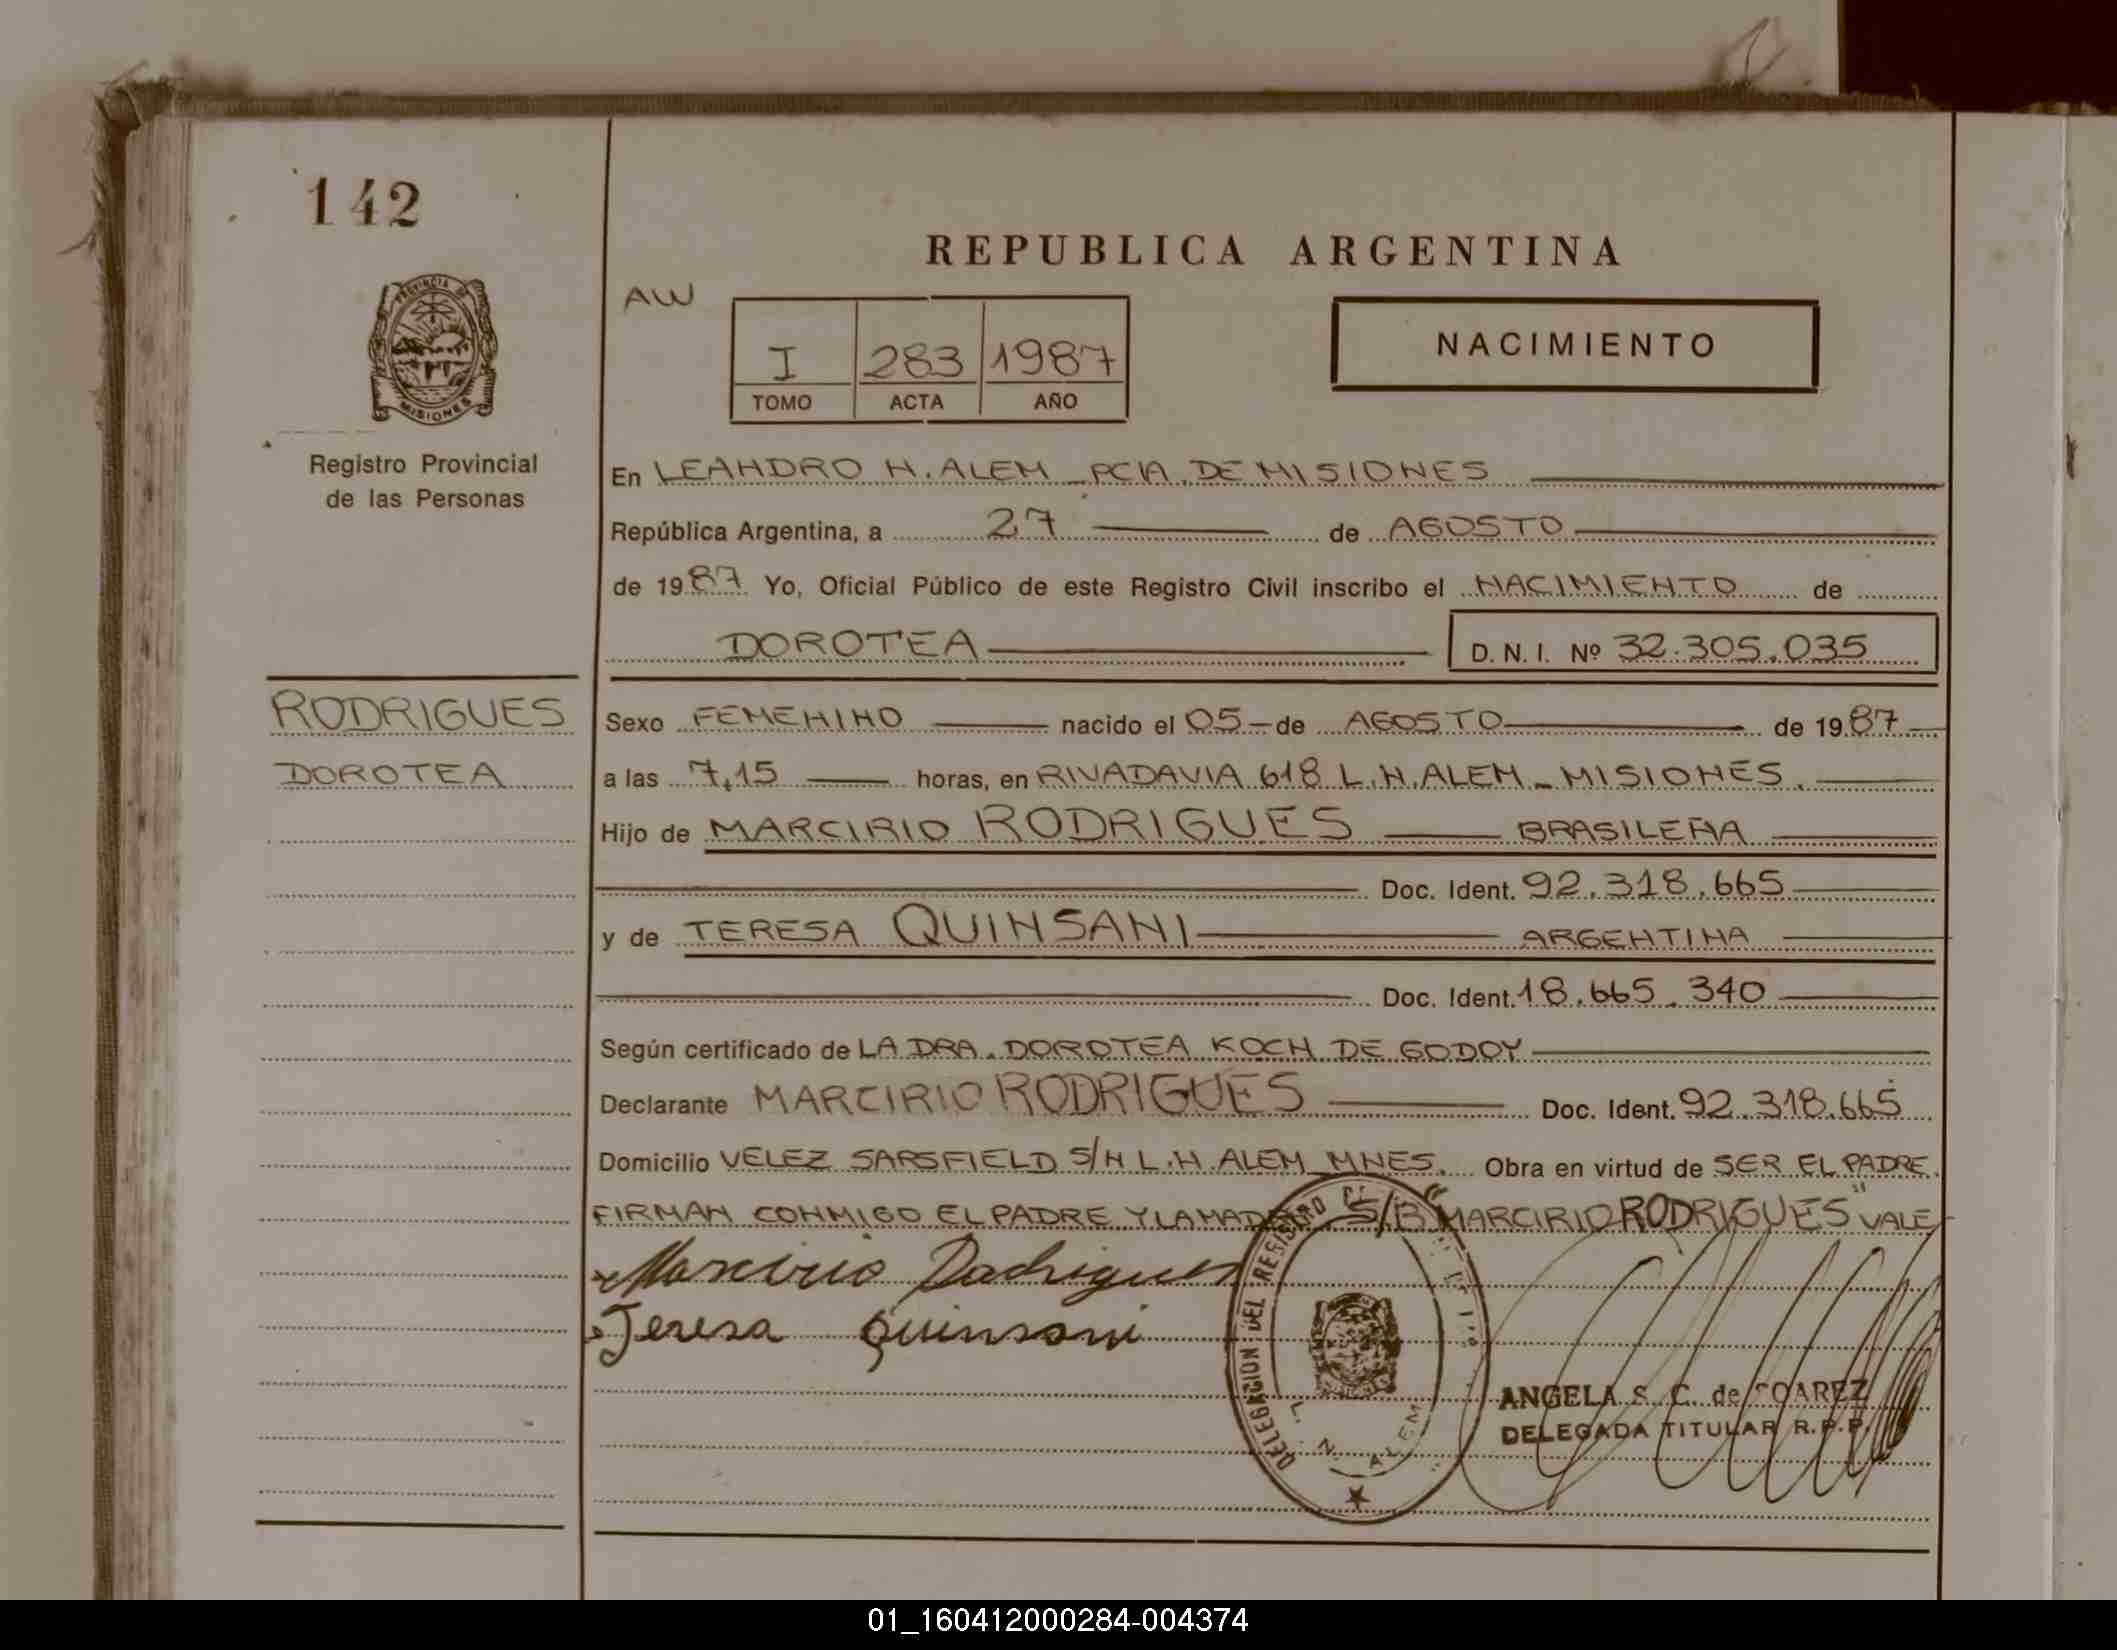 142
REPUBLICA ARGENTINA
AW
PROVINCIA DE
MISIONES
I 283 1987
TOMO ACTA AÑO
NACIMIENTO
Registro Provincial
de las Personas
En LEANDRO N. ALEM PCIA. DE MISIONES
República Argentina, a 27 de AGOSTO
de 1987 Yo, Oficial Público de este Registro Civil inscribo el NACIMIENTO de
DOROTEA D. N. I. Nº 32.305.035
RODRIGUES
DOROTEA
Sexo FEMENINO nacido el 05 de AGOSTO de 1987
a las 7,15 horas, en RIVADAVIA 618 L.N. ALEM - MISIONES.
Hijo de MARCIRIO RODRIGUES BRASILEÑA
Doc. Ident. 92.318.665
y de TERESA QUINSANI ARGENTINA
Doc. Ident. 18.665.340
Según certificado de LA DRA. DOROTEA KOCH DE GODOY
Declarante MARCIRIO RODRIGUES Doc. Ident. 92.318.665
Domicilio VELEZ SARSFIELD S/N L.N. ALEM MNES. Obra en virtud de SER EL PADRE.
FIRMAN CONMIGO EL PADRE Y LA MADRE S/B "MARCIRIO RODRIGUES" VALE
Marcirio Rodrigues
Teresa Quinsani
DELEGACION DEL REGISTRO
L. N. ALEM
ANGELA S. C. de SOAREZ
DELEGADA TITULAR R.P.P.
01_160412000284-004374